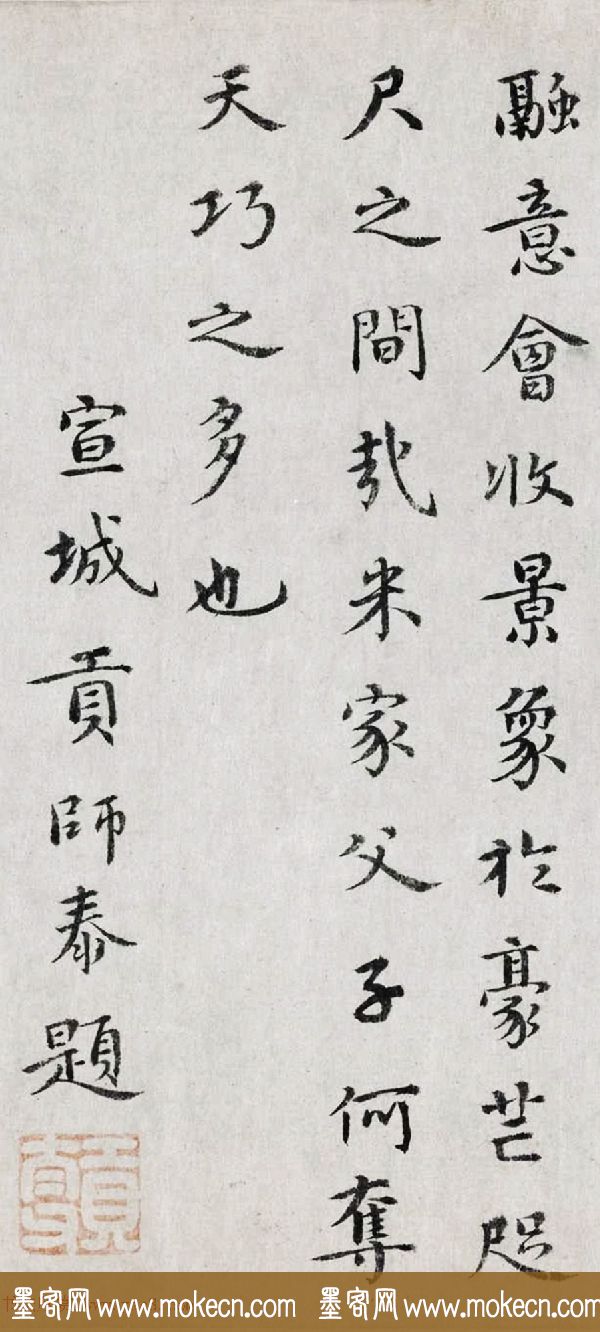 融意會收景象於豪芒咫
尺之間哉米家父子何奪
天巧之多也
宣城貢師泰題
墨客网 www.mokecn.com 墨客网 www.mokecn.com